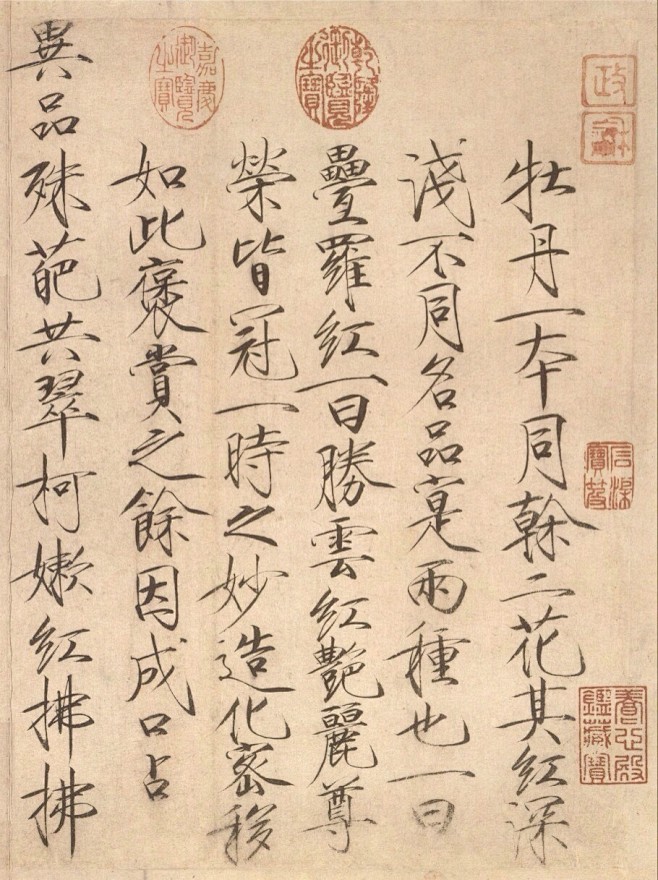 政龢
養心殿鑑藏寶
牡丹一本同幹二花其紅深
淺不同名品寔兩種也一曰
乾隆御覽之寶
疊羅紅一曰勝雲紅艷麗尊
榮皆冠一時之妙造化密移
嘉慶御覽之寶
如此褒賞之餘因成口占
異品殊葩共翠柯嫩紅拂拂